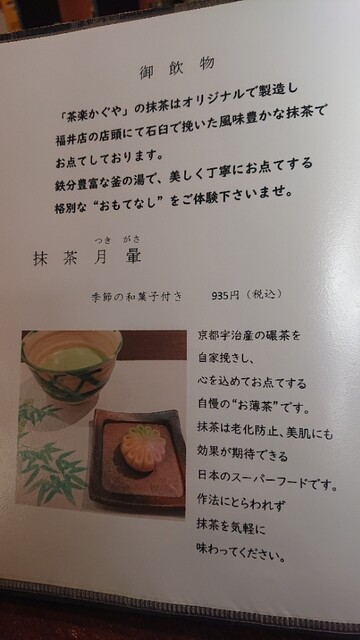 御飲物
「茶楽かぐや」の抹茶はオリジナルで製造し
福井店の店頭にて石臼で挽いた風味豊かな抹茶で
お点てしております。
鉄分豊富な釜の湯で、美しく丁寧にお点てする
格別な“おもてなし”をご体験下さいませ。
つき がさ
抹茶 月 暈
季節の和菓子付き 935円（税込）
京都宇治産の碾茶を
自家挽きし、
心を込めてお点てする
自慢の“お薄茶”です。
抹茶は老化防止、美肌にも
効果が期待できる
日本のスーパーフードです。
作法にとらわれず
抹茶を気軽に
味わってください。